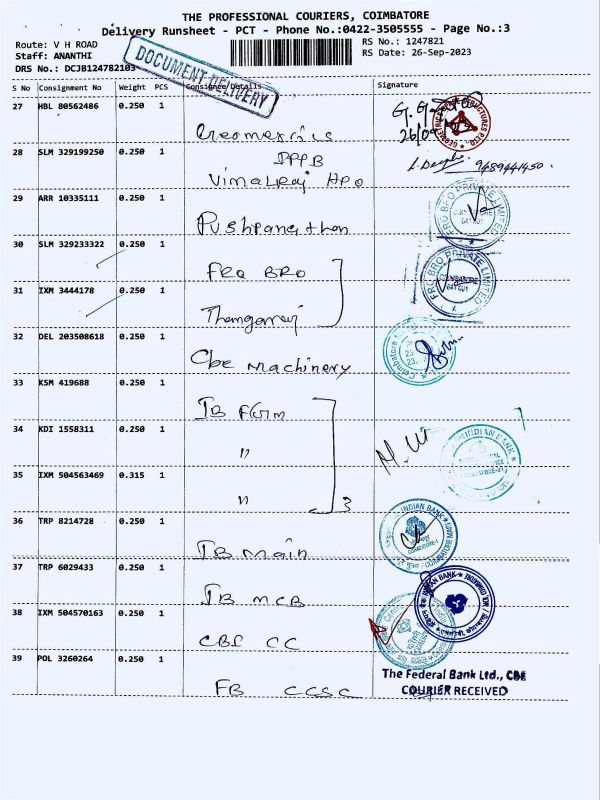 THE PROFESSIONAL COURIERS, COIMBATORE
Delivery Runsheet - PCT - Phone No.:0422-3505555 - Page No.:3
Route: V H ROAD
RS No.: 1247821
Staff: ANANTHI
RS Date: 26-Sep-2023
DRS No.: DCJB124782103
DOCUMENT DELIVERY
S No Consignment No Weight PCS Consignee Details Signature
27 HBL 80562486 0.250 1
Geometrics
26/09
28 SLM 329199250 0.250 1
Vimalraj HPO
9489441450
29 ARR 10335111 0.250 1
Pushpanathan
30 SLM 329233322 0.250 1
FRQ BRO
FRQ BRO PRIVATE LIMITED
31 IXM 3444178 0.250 1
Thangaraj
FRQ BRO PRIVATE LIMITED
32 DEL 203508618 0.250 1
Cbe Machinery
Coimbatore
33 KSM 419688 0.250 1
IB
34 KDI 1558311 0.250 1
"
INDIAN BANK
35 IXM 504563469 0.315 1
"
3
36 TRP 8214728 0.250 1
IB Main
INDIAN BANK
37 TRP 6029433 0.250 1
IB MCB
INDIAN BANK
38 IXM 504570163 0.250 1
CBE CC
39 POL 3260264 0.250 1
FB CCSC
The Federal Bank Ltd., CBE
COURIER RECEIVED